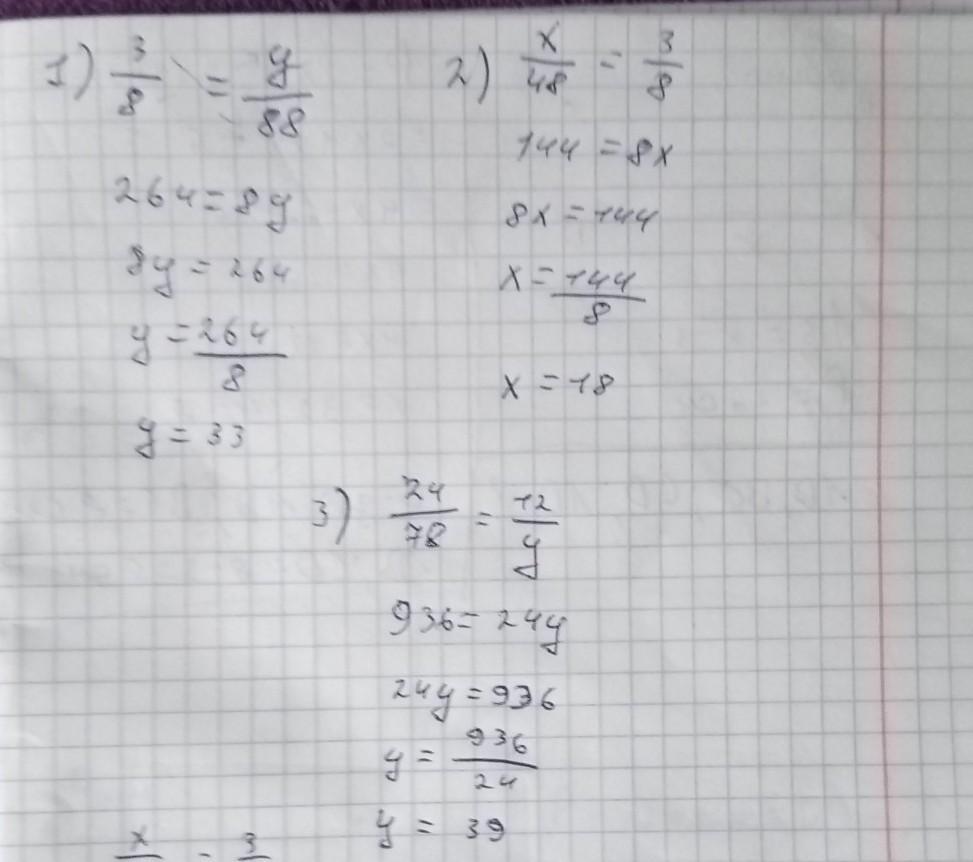 1) 3/8 = y/88
264 = 8y
8y = 264
y = 264/8
y = 33
2) x/48 = 3/8
144 = 8x
8x = 144
x = 144/8
x = 18
3) 24/78 = 12/y
936 = 24y
24y = 936
y = 936/24
y = 39
x = 3